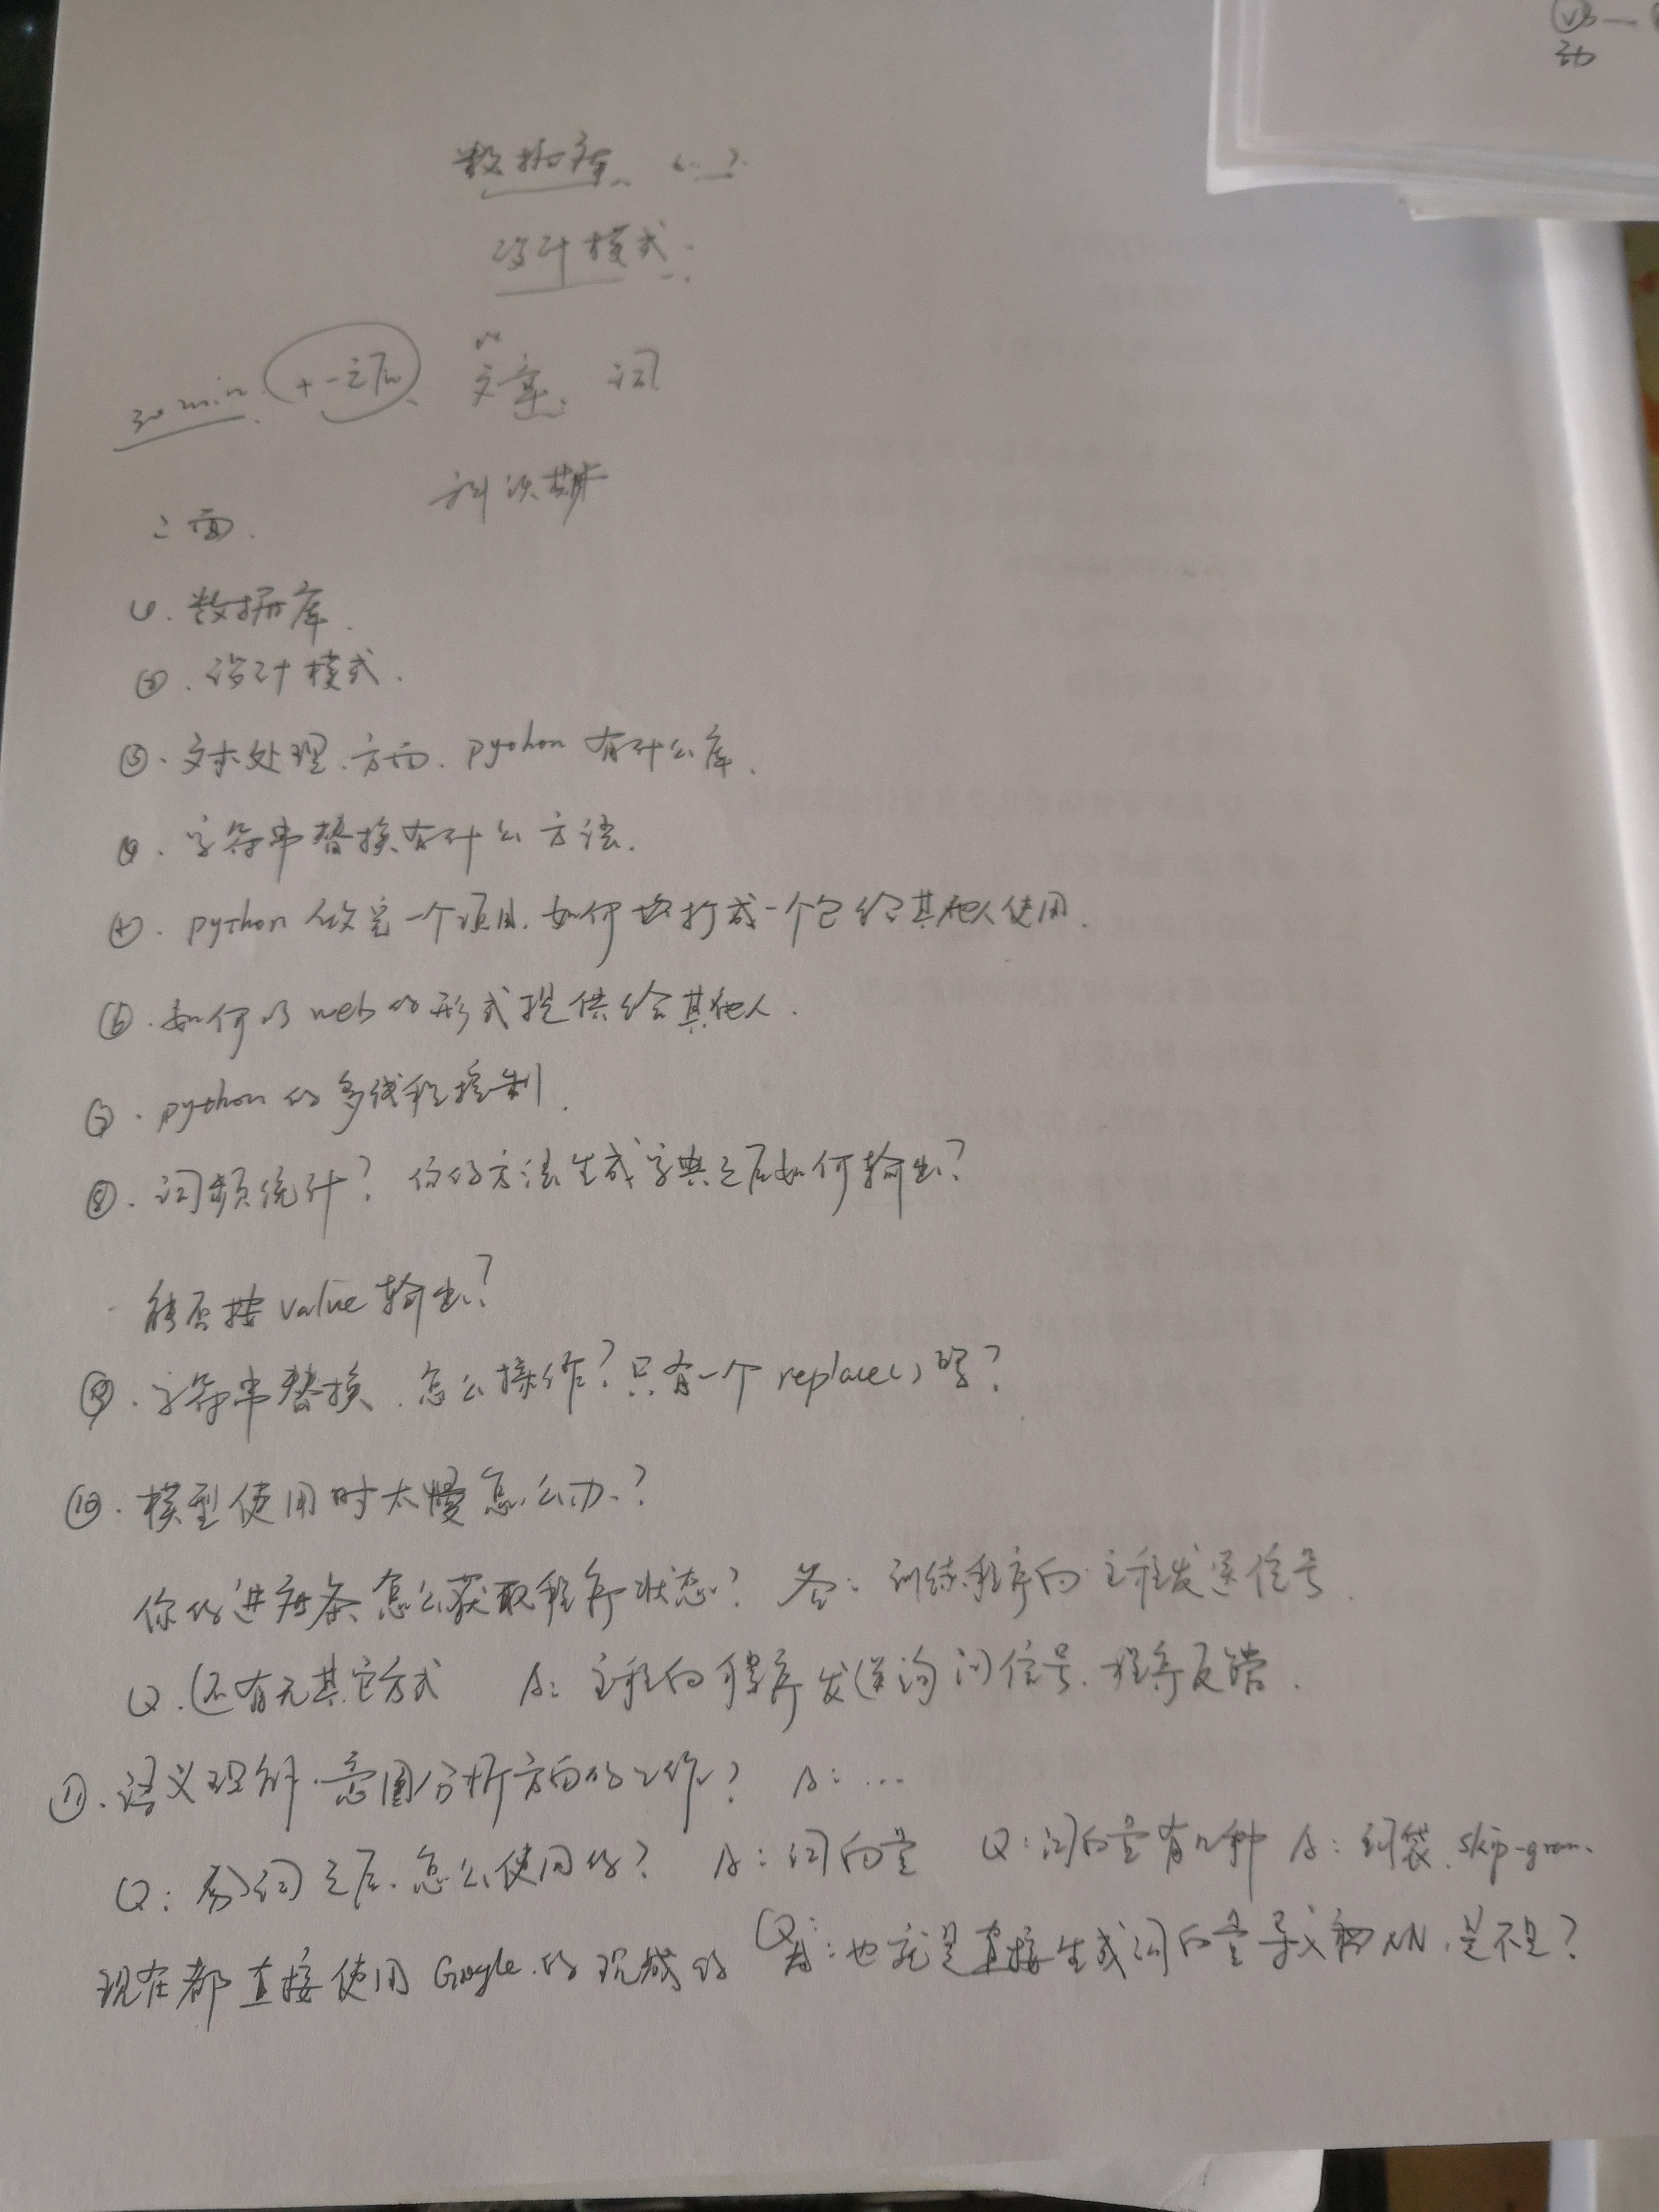 数据库
设计模式
30 min 文章 词
二面.
①. 数据库.
②. 设计模式.
③. 文本处理.方面. python 有什么库.
④. 字符串替换有什么方法.
⑤. python 做完一个项目.如何打成一个包给其他人使用.
⑥. 如何以web的形式提供给其他人.
⑦. python 的多线程控制.
⑧. 词频统计? 你的方法生成字典之后如何输出?
能否按 value 输出?
⑨. 字符串替换.怎么操作?只有一个 replace() 吗?
⑩. 模型使用时太慢怎么办.?
你的进度条怎么获取程序状态? 答: 训练程序向主程发送信号.
Q.还有无其它方式 A: 主程向程序发送询问信号.程序反馈.
⑪. 语义理解.意图分析方面的工作? A: ...
Q: 分词之后.怎么使用的? A: 词向量 Q: 词向量有几种 A: 词袋. skip-gram.
现在都直接使用 Google 的现成的 Q: 也就是直接生成词向量 NN.是不是?